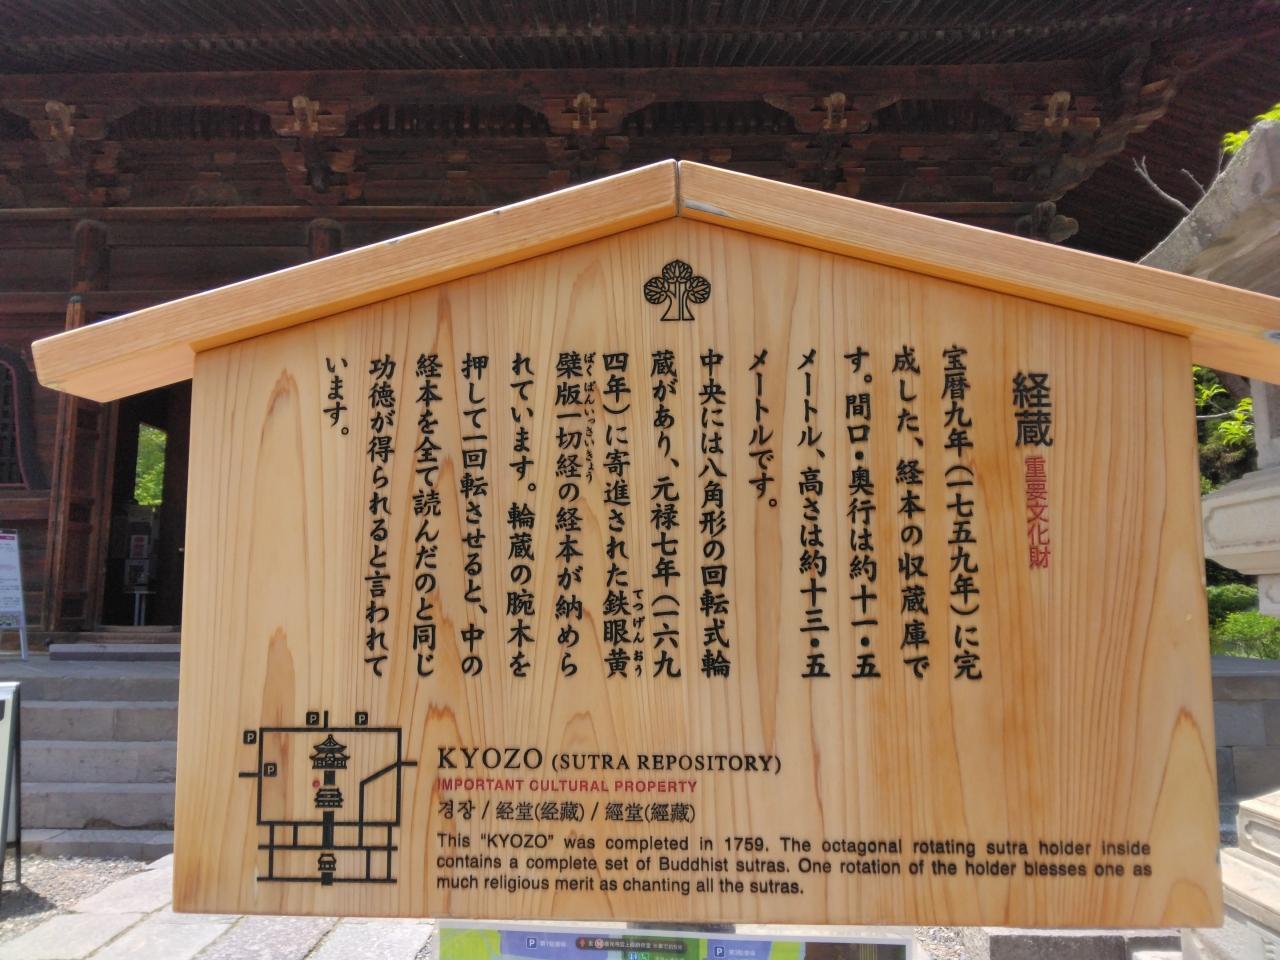 経蔵 重要文化財
宝暦九年(一七五九年)に完
成した、経本の収蔵庫で
す。間口・奥行は約十一・五
メートル、高さは約十三・五
メートルです。
中央には八角形の回転式輪
蔵があり、元禄七年(一六九
四年)に寄進された鉄眼黄
てつげんおう
檗版一切経の経本が納めら
ばくばんいっさいきょう
れています。輪蔵の腕木を
押して一回転させると、中の
経本を全て読んだのと同じ
功徳が得られると言われて
います。
P P
P
P
KYOZO (SUTRA REPOSITORY)
IMPORTANT CULTURAL PROPERTY
경장 / 经堂(经藏) / 經堂(經藏)
This "KYOZO" was completed in 1759. The octagonal rotating sutra holder inside
contains a complete set of Buddhist sutras. One rotation of the holder blesses one as
much religious merit as chanting all the sutras.